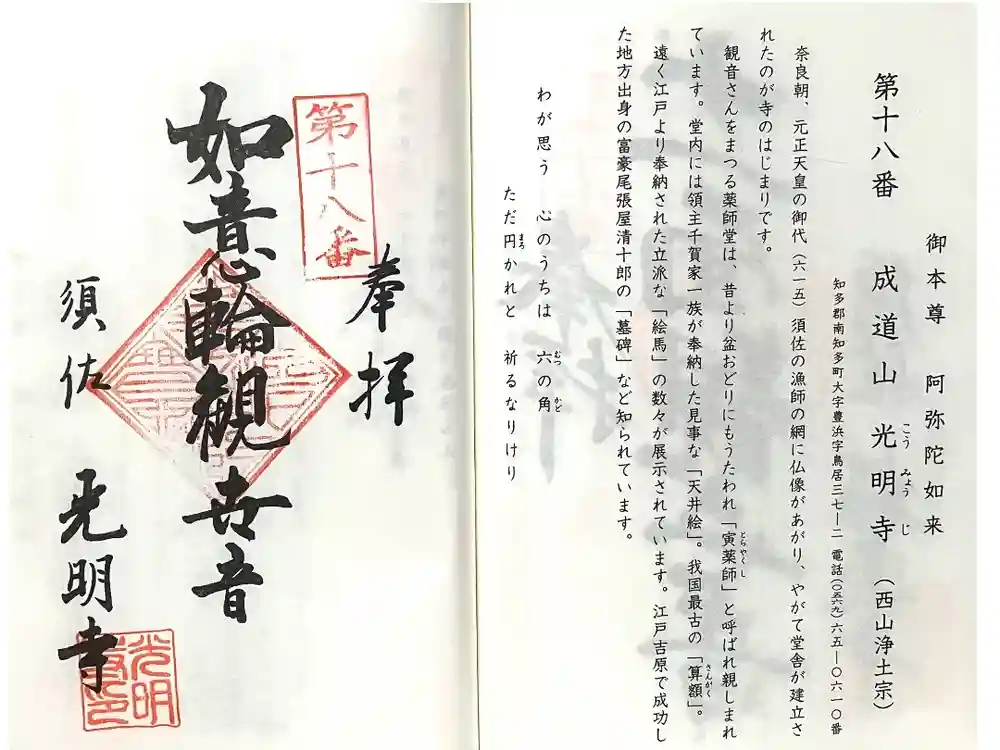 御本尊　阿弥陀如来
第十八番　成道山　光明寺　（西山浄土宗）
こうみょうじ
知多郡南知多町大字豊浜字鳥居三七―二　電話（〇五六九）六五―〇六一〇番
奈良朝、元正天皇の御代（六一五）須佐の漁師の網に仏像があがり、やがて堂舎が建立さ
れたのが寺のはじまりです。
観音さんをまつる薬師堂は、昔より盆おどりにもうたわれ「寅薬師」と呼ばれ親しまれ
とらやくし
ています。堂内には領主千賀家一族が奉納した見事な「天井絵」。我国最古の「算額」。
さんがく
遠く江戸より奉納された立派な「絵馬」の数々が展示されています。江戸吉原で成功し
た地方出身の富豪尾張屋清十郎の「墓碑」など知られています。
わが思う　心のうちは　六の角
むつ　かど
ただ円かれと　祈るなりけり
まつ
第十八番
奉拝
如意輪観世音
須佐　光明寺
光明